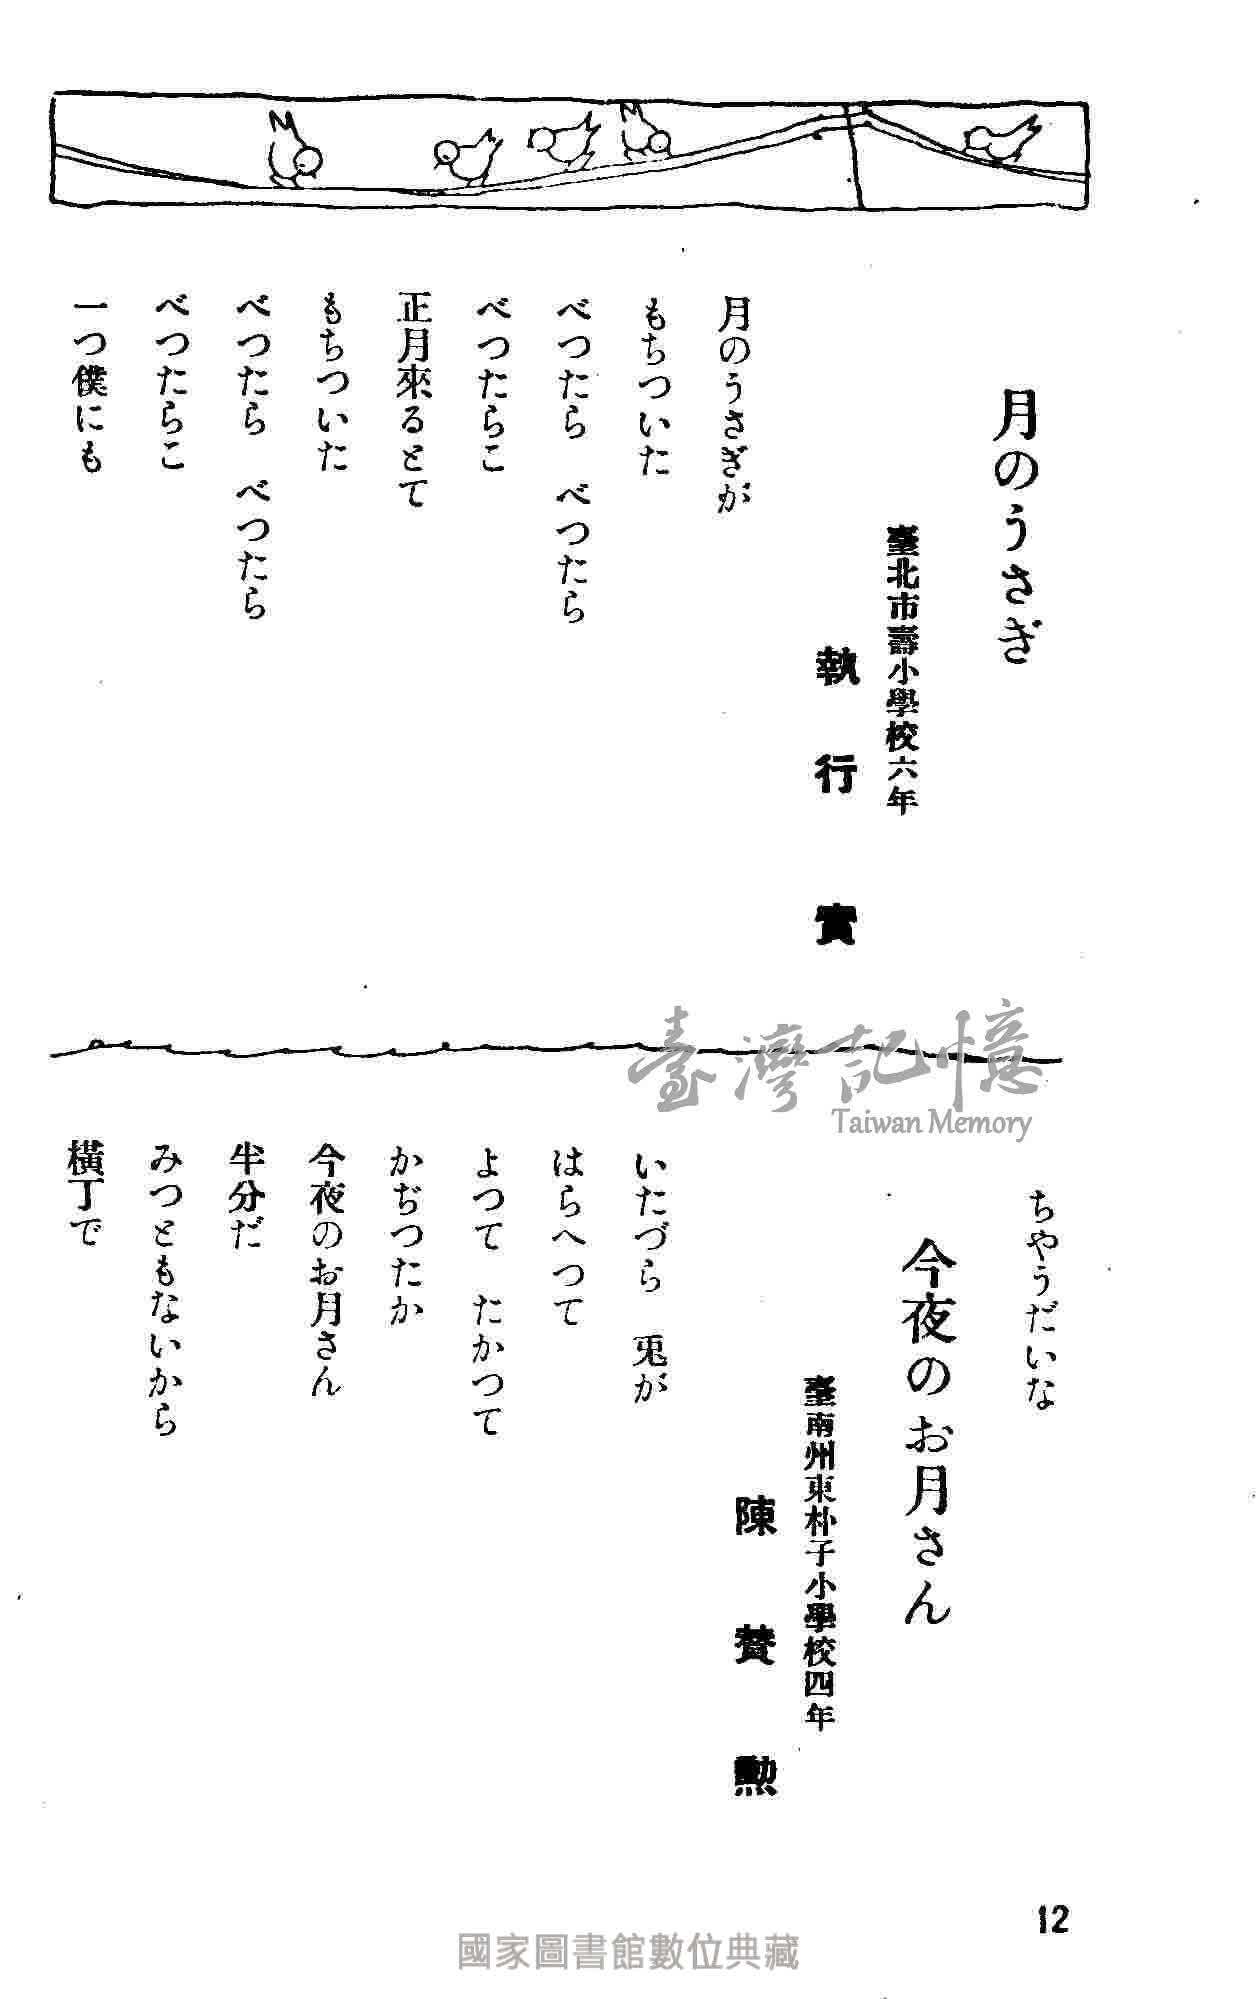 月のうさぎ
臺北市壽小學校六年
執行實
月のうさぎが
もちついた
べつたら　べつたら
べつたらこ
正月來るとて
もちついた
べつたら　べつたら
べつたらこ
一つ僕にも
ちやうだいな
今夜のお月さん
臺南州東朴子小學校四年
陳賛勲
いたづら　兎が
はらへつて
よつて　たかつて
かぢつたか
今夜のお月さん
半分だ
みつともないから
橫丁で
12
臺灣記憶
Taiwan Memory
國家圖書館數位典藏